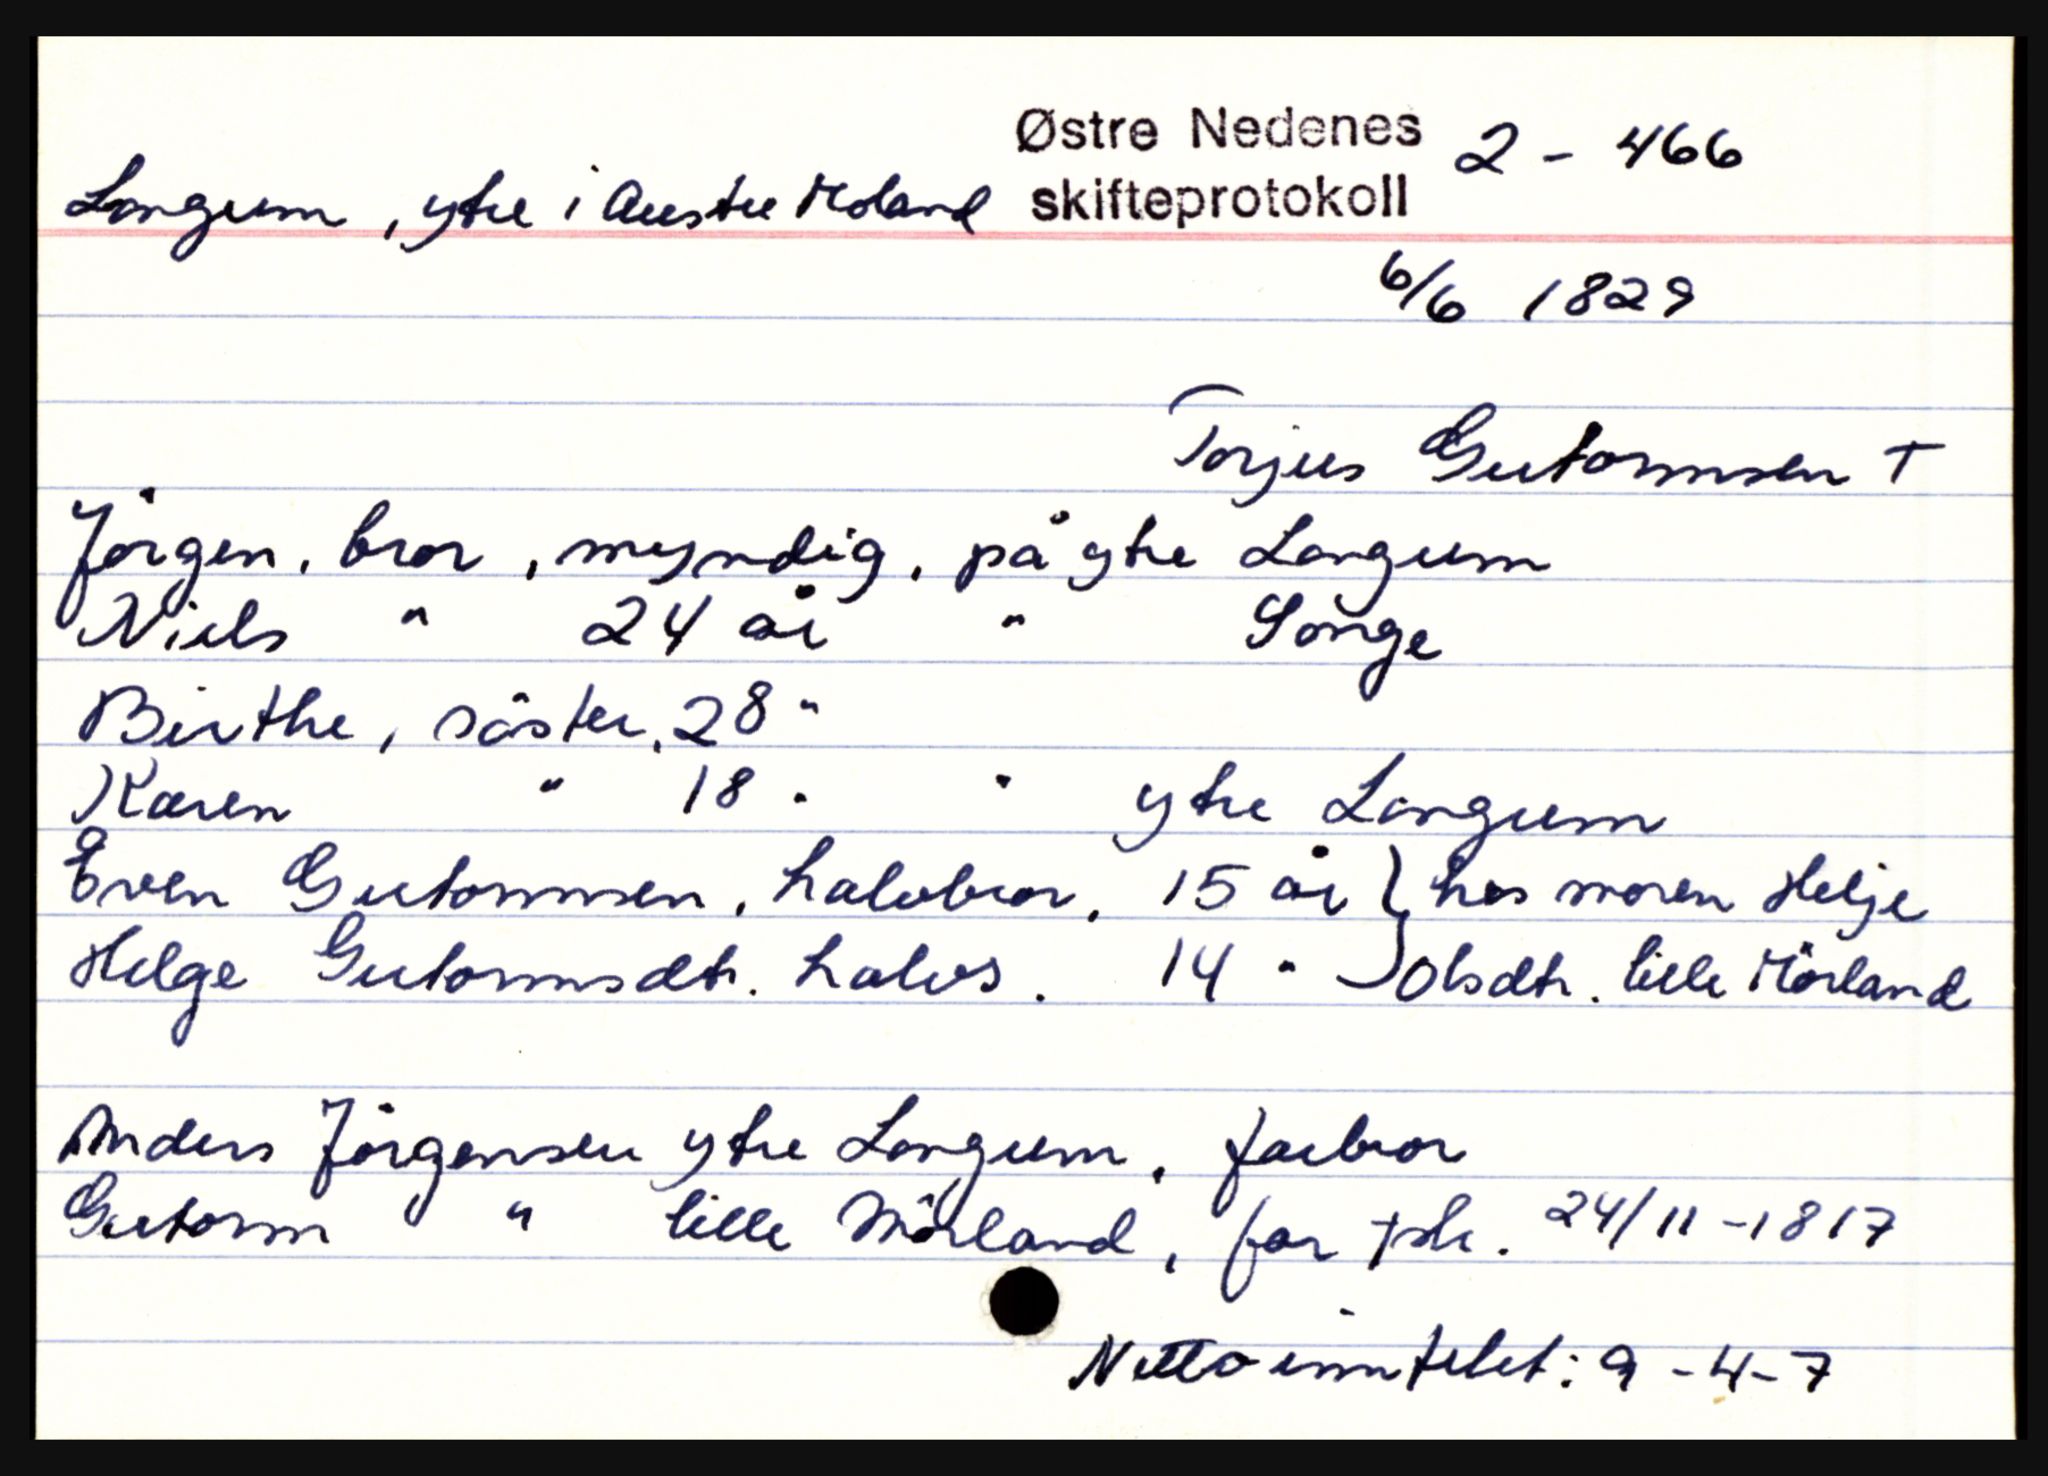 Østre Nedenes 2 - 466
Longum, ytre i Austre Moland skifteprotokoll
6/6 1829
Torjus Gutormsen †
Jörgen, bror, myndig, på ytre Longum
Niels " 24 år " Songe
Birthe, söster, 28 "
Karen " 18 " " ytre Longum
Even Gutormsen, halvbror, 15 år } hos moren Helje
Helge Gutormsdtr. halvs. 14 " Olsdtr. lille Mörland
Anders Jörgensen ytre Longum, farbror
Gutorm " lille Mörland, far † sk. 24/11-1817
Netto 9-4-7